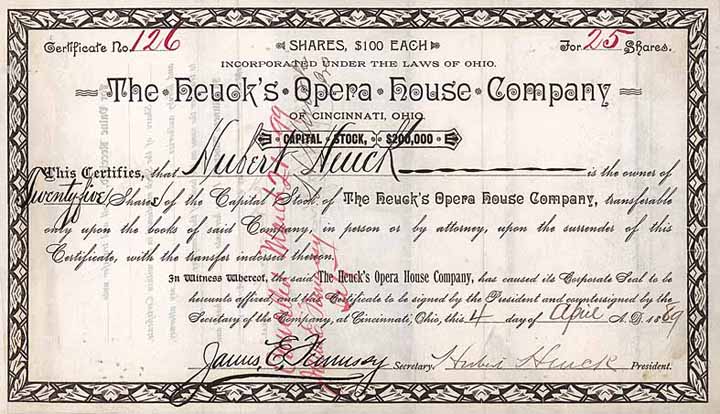 Certificate No. 126
SHARES, $100 EACH
For 25 Shares.
INCORPORATED UNDER THE LAWS OF OHIO.
The Heuck's Opera House Company
OF CINCINNATI, OHIO.
CAPITAL STOCK, $200,000
This Certifies, that Hubert Heuck is the owner of
Twentyfive Shares of the Capital Stock of The Heuck's Opera House Company, transferable
only upon the books of said Company, in person or by attorney, upon the surrender of this
Certificate, with the transfer indorsed thereon.
In Witness Whereof, the said The Heuck's Opera House Company, has caused its Corporate Seal to be
hereunto affixed, and this Certificate to be signed by the President and countersigned by the
Secretary of the Company, at Cincinnati, Ohio, this 4 day of April A. D. 1889
James E. Fennessy Secretary. Hubert Heuck President.